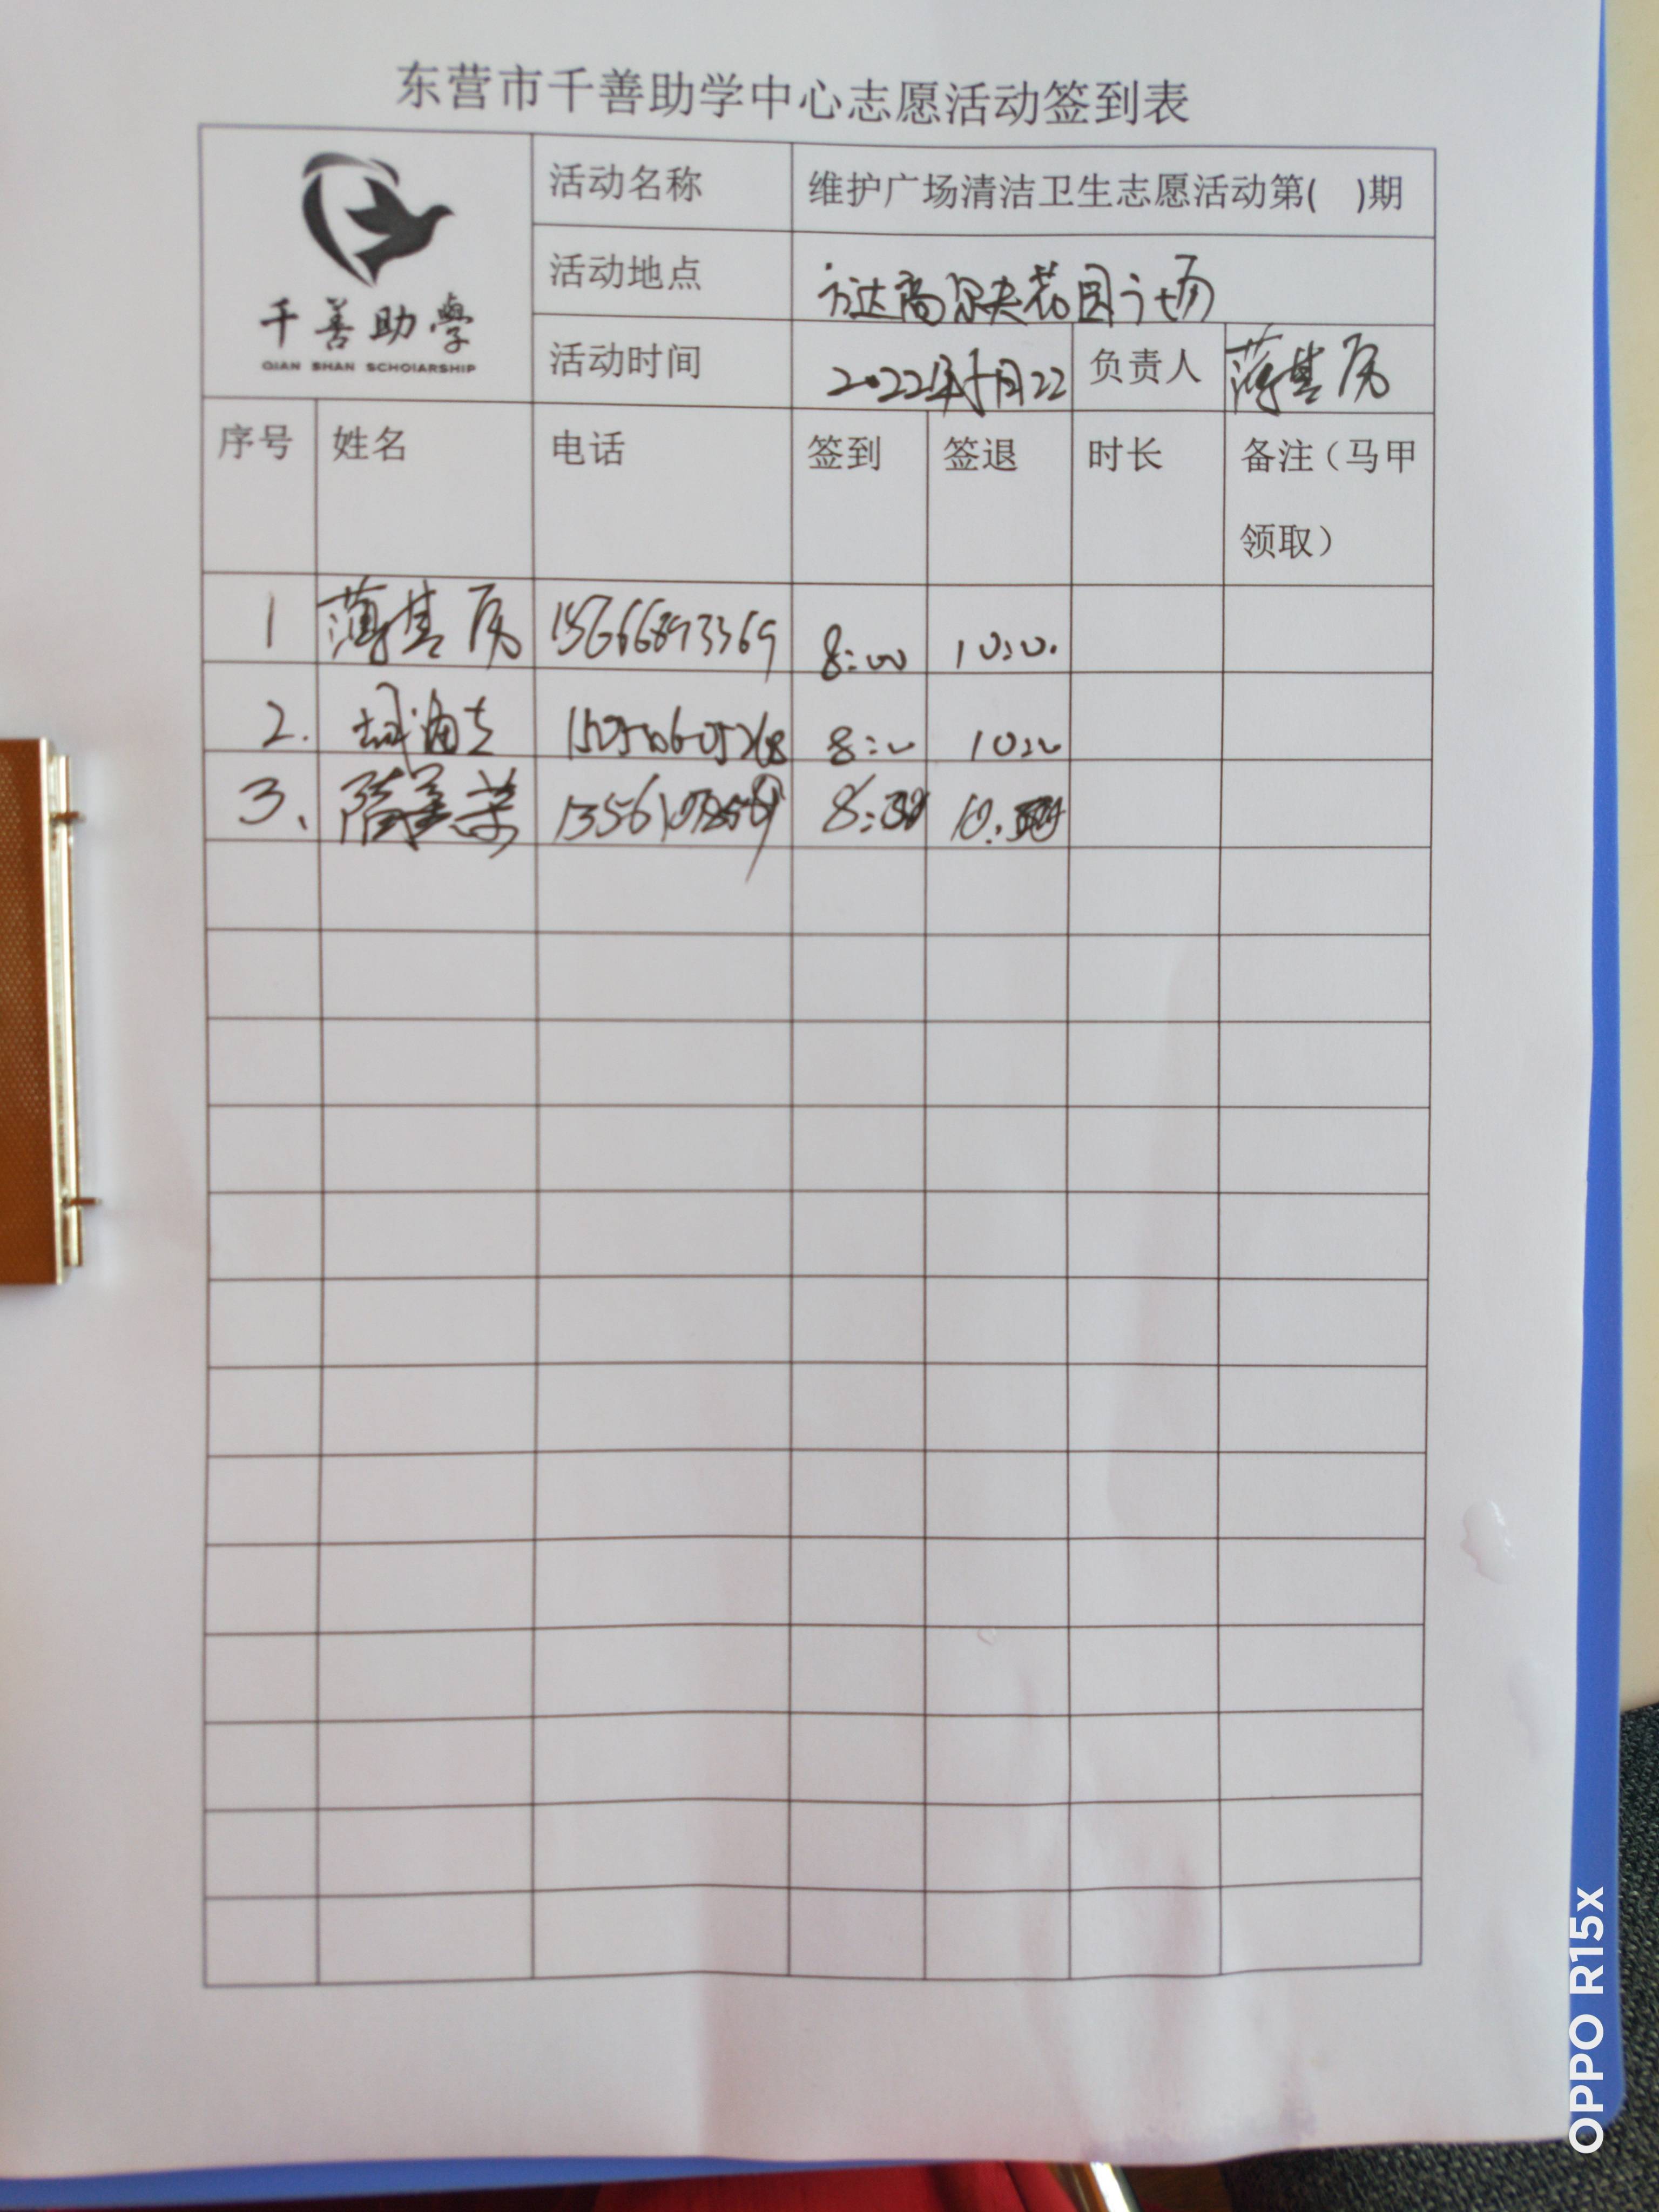 东营市千善助学中心志愿活动签到表
千善助學
QIAN SHAN SCHOLARSHIP
活动名称 维护广场清洁卫生志愿活动第( )期
活动地点 方达高尔夫花园广场
活动时间 2022年5月22 负责人 薄其
序号 姓名 电话 签到 签退 时长 备注（马甲
领取）
1 薄其 15666893369 8:00 10:00
2. 8:00 10:00
3、 8: 10:
OPPO R15x